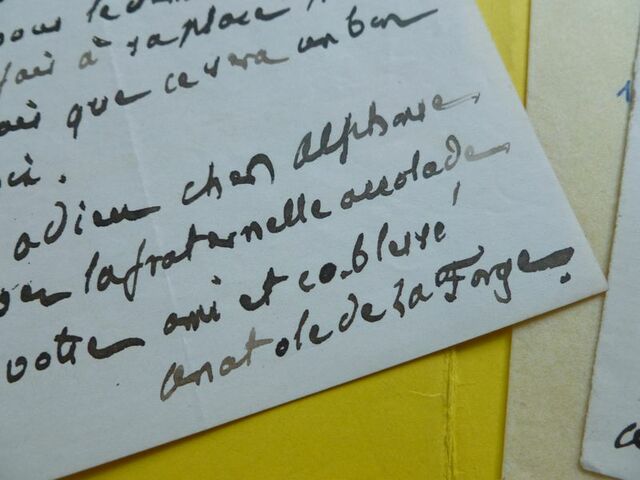 pour le
fair à sa place
que ce sera un bon
adieu cher Alphonse
la fraternelle accolade
votre ami et co-blessé
Anatole de La Forge.